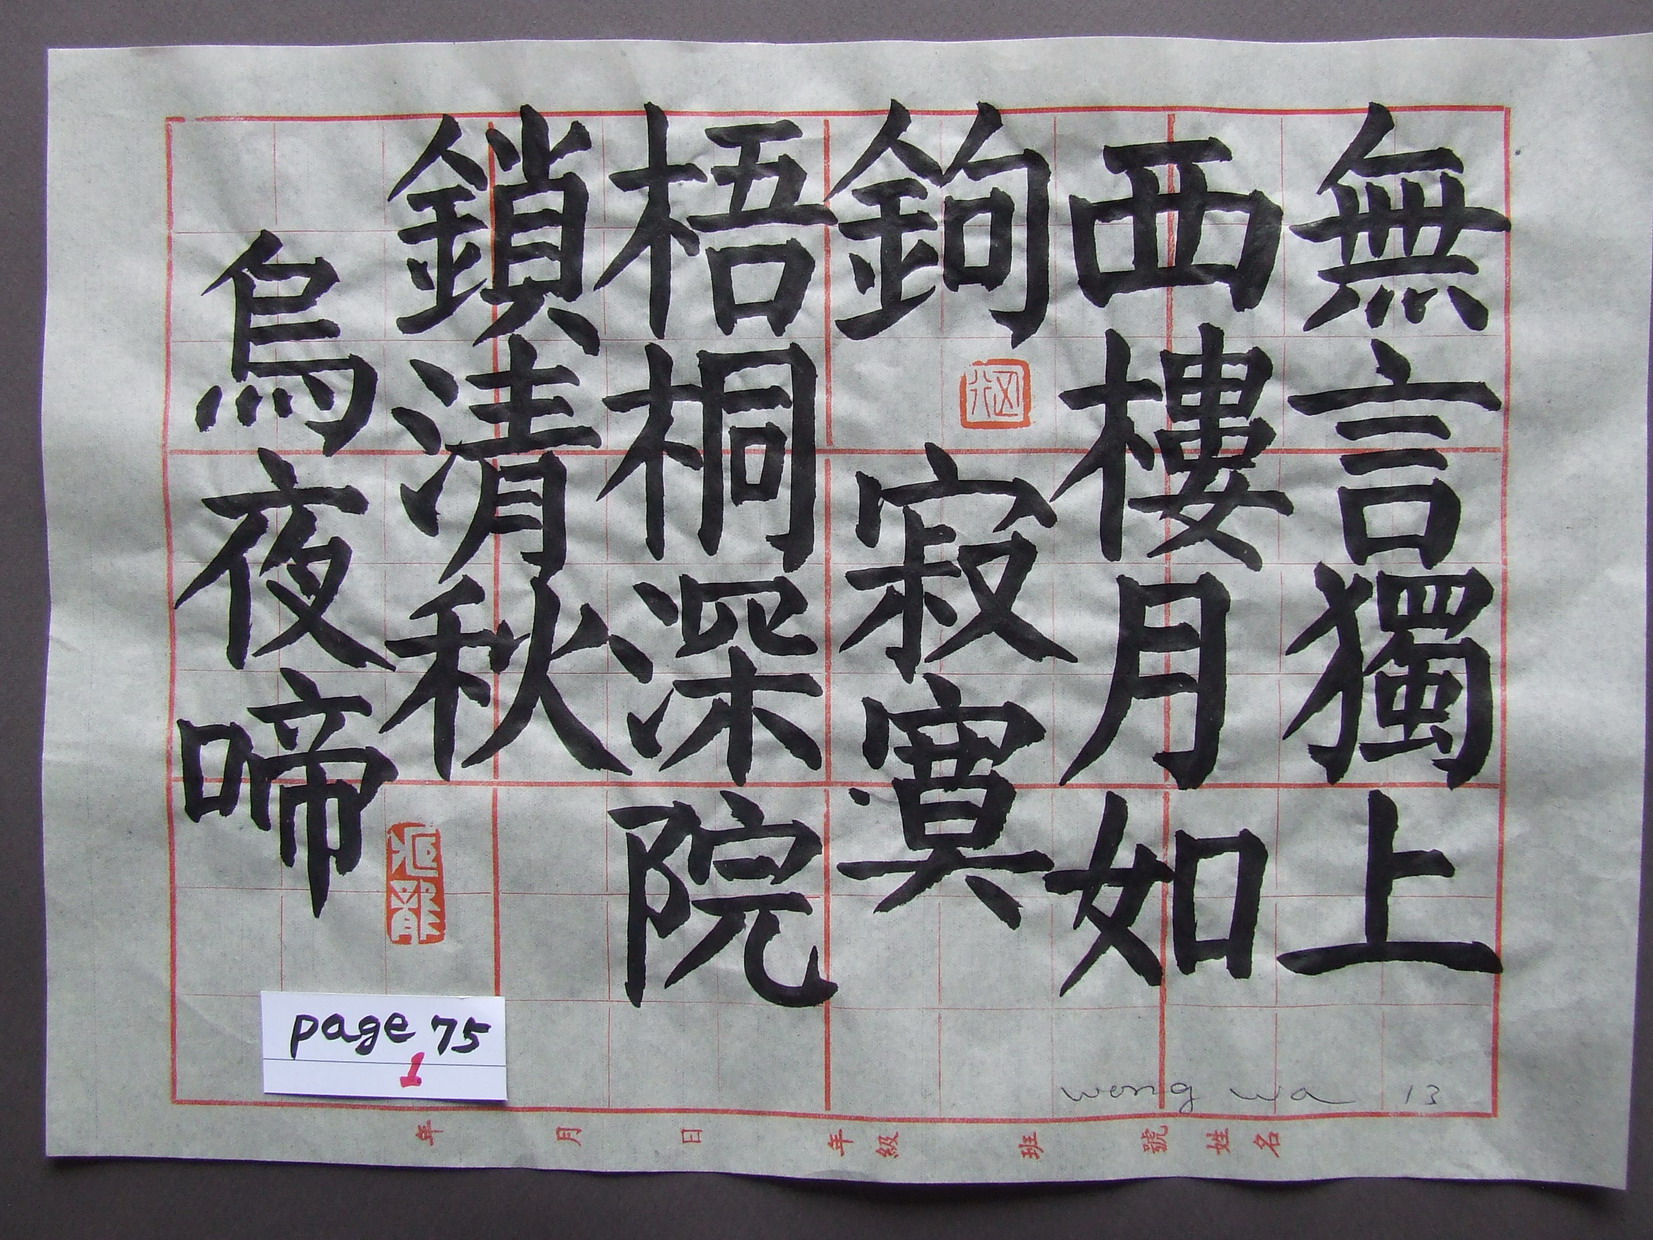 無言獨上
西樓月如
鉤
寂寞
梧桐深院
鎖清秋
烏夜啼
page 75
1
wong wa 13
年 月 日 年級 班 號 姓名